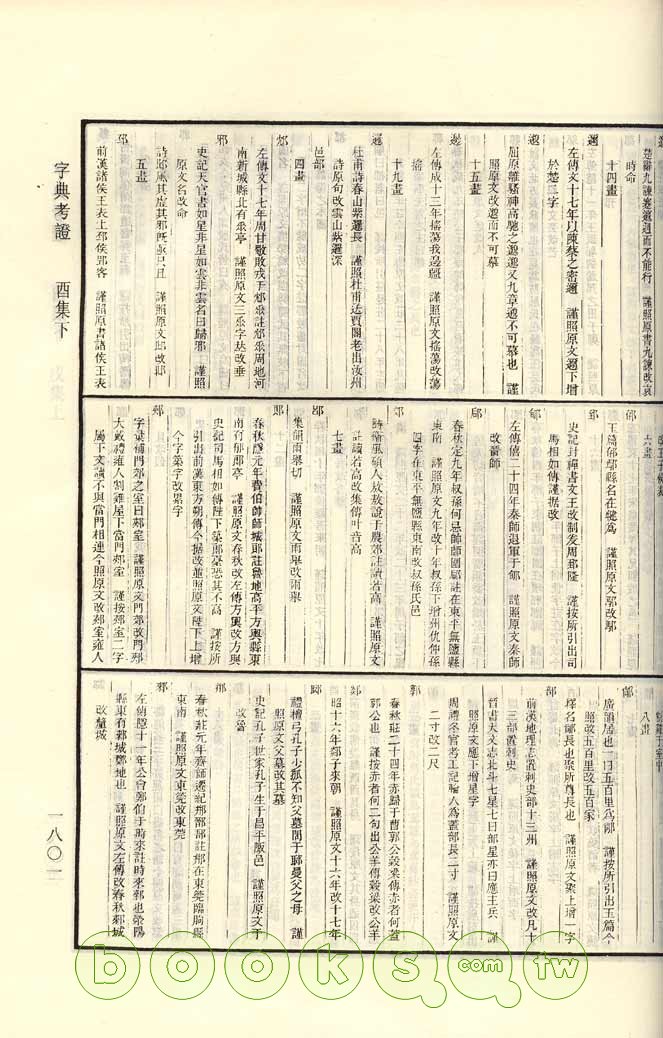 楚辭九諫蹇邅迴而不能行　謹照原書九諫改哀
時命
十四畫
邇
左傳文十七年以陳蔡之密邇　謹照原文邇下增
於楚二字
邈
屈原離騷神高馳之邈邈又九章邈不可慕也　謹
照原文改邈而不可慕
十五畫
邊
左傳成十三年搖蕩我邊疆　謹照原文搖蕩改蕩
搖
十九畫
邏
杜甫詩春山紫邏長　謹照杜甫送賈閣老出汝州
詩原句改雲山紫邏深
邑部
四畫
邥
左傳文十七年周甘歜敗戎于邥乘註邥乘周地河
南新城縣北有乘亭　謹照原文三乘字𠀤改垂
邪
史記天官書如星非星如雲非雲名曰歸邪　謹照
原文名改命
詩邱風其虛其邪旣亟只且　謹照原文邱改邶
五畫
邳
前漢諸侯王表上邳侯郢客　謹照原書諸侯王表
六畫
郁
玉篇郁鄢縣名在犍爲　謹照原文
郅
史記封禪書文王改制爰周郅隆　謹按所引出司
馬相如傳謹據改
郇
左傳僖二十四年秦師退軍于郇　謹照原文秦師
改晉師
郈
春秋定九年叔孫何忌帥師圍郈註在東平無鹽縣
東南　謹照原文九年改十年叔孫下增州仇仲孫
四字在東平無鹽縣東南改叔孫氏邑
郊
詩衞風碩人敖敖說于農郊註讀若高　謹照原文
註讀若高改集傳叶音高
七畫
郚
集韻雨舉切　謹照原文雨舉改雨舉
郎
春秋隱元年費伯帥師城郎註魯地高平方輿縣東
南有郁郎亭　謹照原文春秋改左傳方輿改方與
史記司馬相如傳陛下築郎臺恐其不高　謹按所
引出前漢東方朔傳今據改並照原文陛下上增
今字築字改累字
郟
字彙補門郊之室曰郟室　謹照原文門郊改門郟
大戴禮雍人割雞屋下當門郟室　謹按郟室二字
屬下文讀不與當門相連今照原文改郟室雍人
八畫
部
廣韻居也一曰五百里爲鄙　謹按所引出玉篇今
照改五百里改五百家
釋名鄙長也聚所尊長也　謹照原文聚上增一字
前漢地理志置刺史部十三州　謹照原文改凡十
三部置刺史
晉書天文志北斗七星七曰部星亦曰應主兵　謹
照原文應下增星字
周禮冬官考工記輪人爲蓋部長二寸　謹照原文
二寸改二尺
郭
春秋莊二十四年赤歸于曹郭公穀梁傳赤者何蓋
郭公也　謹按赤者何二句出公羊傳穀梁改公羊
郯
昭十六年郯子來朝　謹照原文十六年改十七年
郰
禮檀弓孔子少孤不知父墓問于郰曼父之母　謹
照原文父墓改其墓
史記孔子世家孔子生于昌平陬邑　謹照原文于
改魯
郱
春秋莊元年齊師遷紀郱鄑郚註郱在東莞臨朐縣
東南　謹照原文東莞改東莞
郲
左傳隱十一年公會鄭伯于時來註時來郲也滎陽
縣東有郲城鄭地也　謹照原文左傳改春秋郲城
改釐城
字典考證　酉集下
一八〇一
books.com.tw